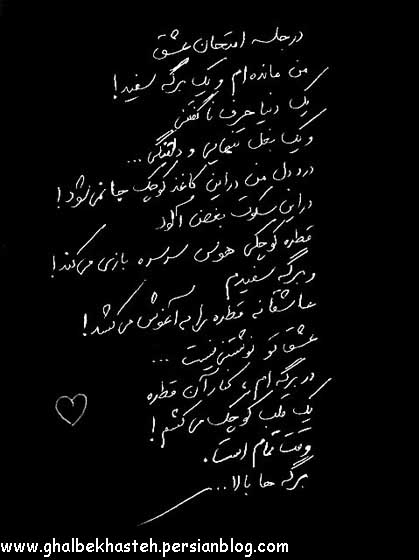 در جلسه امتحان عشق
من مانده ام و یک برگه سفید!
یک دنیا حرف نا گفتنی
و یک بغل تنهایی و دلتنگی...
درد دل من در این کاغذ کوچک جا نمی شود!
در این سکوت بغض آلود
قطره کوچکی هوس سرسره بازی می کند!
و برگه سفیدم
عاشقانه قطره را به آغوش می کشد!
عشق تو نوشتنی نیست ...
در برگه ام ، کنار آن قطره
یک قلب کوچک می کشم!
وقت تمام است.
برگه ها بالا...
www.ghalbekhasteh.persianblog.com